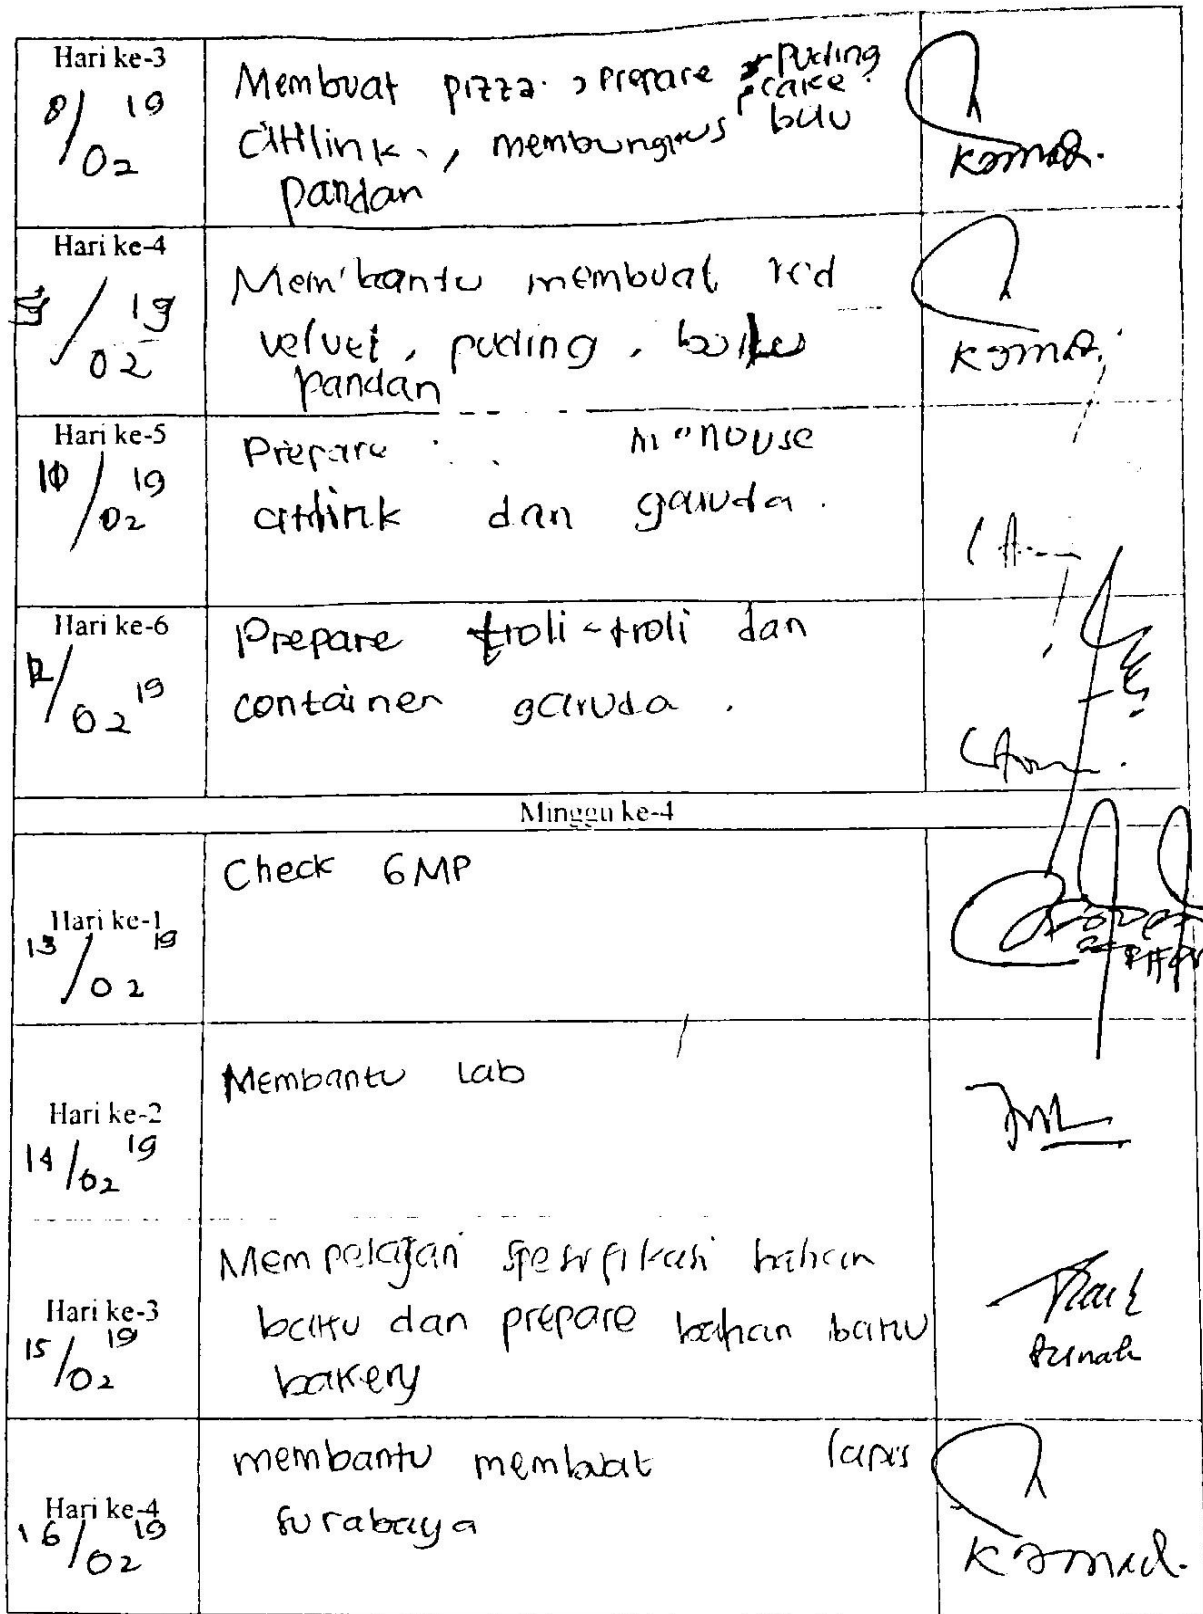 Hari ke-3
8/02 19
Membuat pizza, prepare puding
cake
citilink, membungkus bolu
pandan
Hari ke-4
/02 19
Membantu membuat red
velvet, puding, bolu
pandan
Hari ke-5
10/02 19
Prepare
citilink dan garuda.
Hari ke-6
12/02 19
Prepare troli-troli dan
container garuda.
Minggu ke-4
Hari ke-1
13/02 19
Check GMP
Hari ke-2
14/02 19
Membantu Lab
Hari ke-3
15/02 19
Mempelajari spesifikasi bahan
baku dan prepare bahan baku
bakery
Hari ke-4
16/02 19
membantu membuat lapis
surabaya